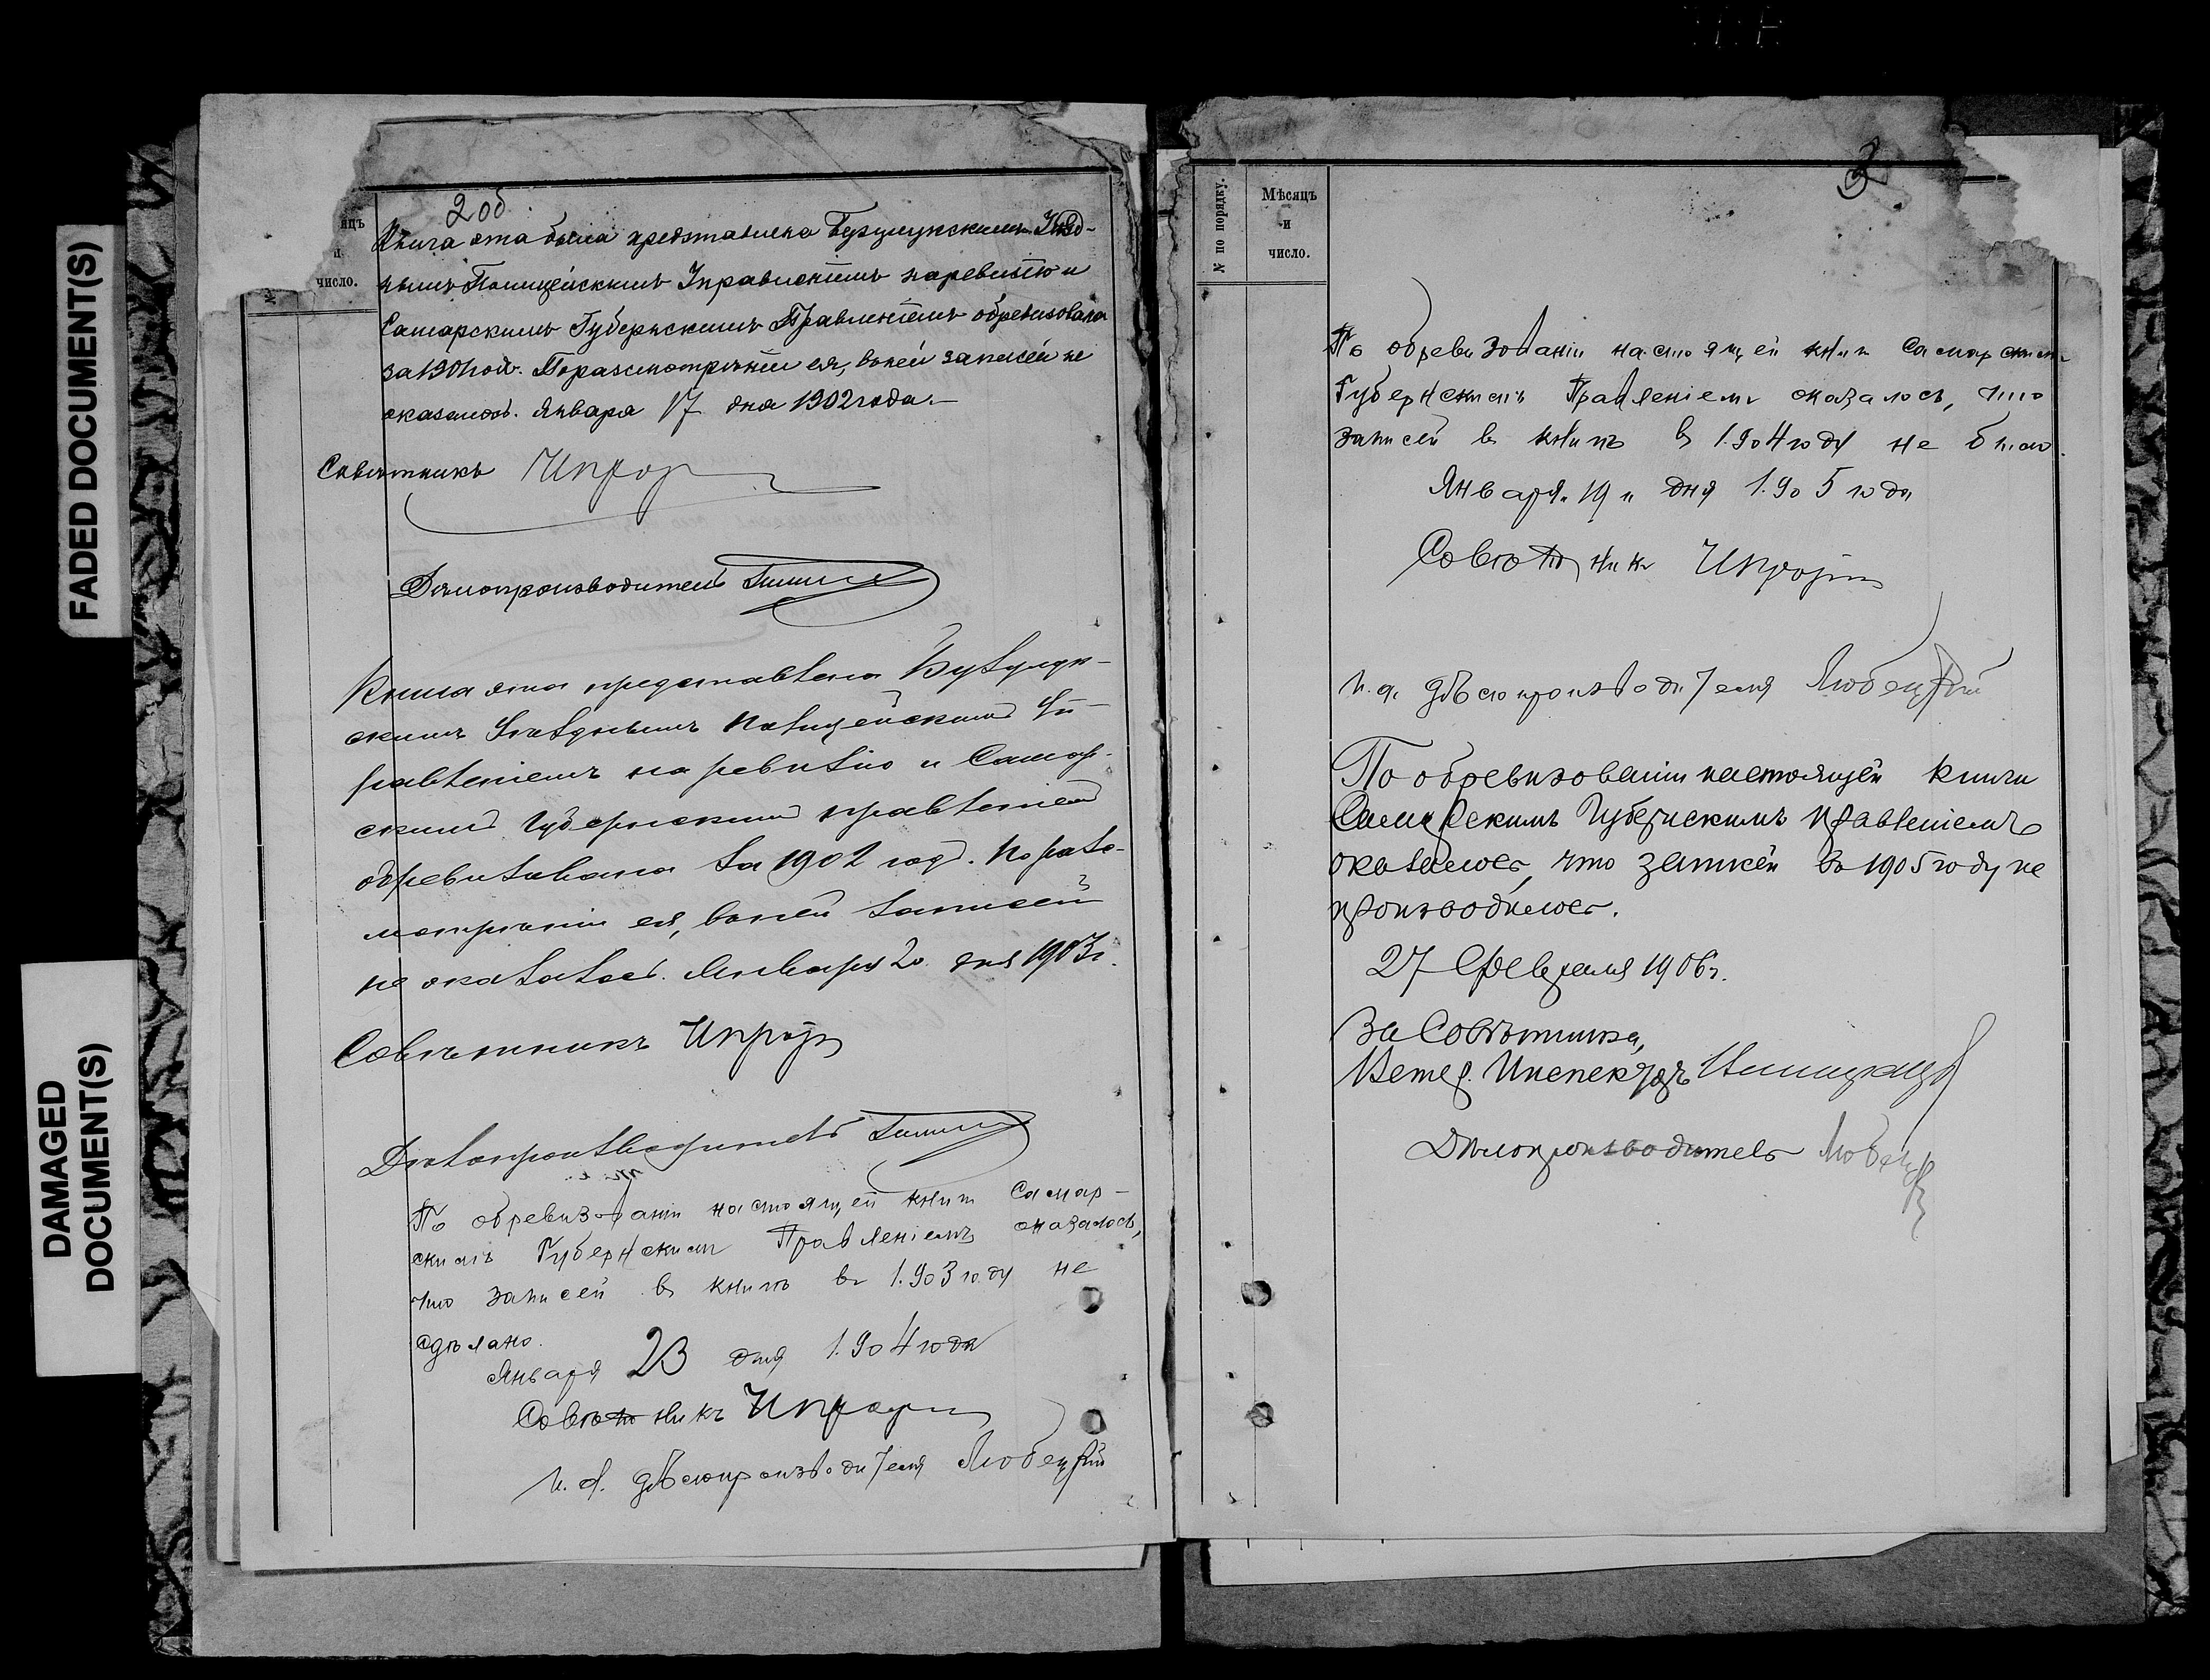 FADED DOCUMENT(S)
DAMAGED
DOCUMENT(S)
2 об
яцъ
и
число.
Книга эта была представлена Бузулукскимъ Уѣзд-
нымъ Полицейскимъ Управленіемъ на ревизію и
Самарскимъ Губернскимъ Правленіемъ обревизована
за 1901 годъ. По разсмотрѣніи ея, въ ней записей не
оказалось. Января 17 дня 1902 года.
Совѣтникъ
Дѣлопроизводитель
Книга эта представлена Бузулук-
скимъ Уѣзднымъ Полицейскимъ Уп-
равленіемъ на ревизію и Самар-
скимъ Губернскимъ Правленіемъ
обревизована за 1902 годъ. По разс-
мотрѣніи ея, въ ней записей
не оказалось. Января 20 дня 1903 г.
Совѣтникъ
Дѣлопроизводитель
По обревизованіи настоящей книги Самар-
скимъ Губернскимъ Правленіемъ оказалось,
что записей въ книгѣ въ 1903 году не
сдѣлано.
Января 23 дня 1904 года
Совѣтникъ
И. д. дѣлопроизводителя Любецкій
№ по порядку.
Мѣсяцъ
и
число.
3
По обревизованіи настоящей книги Самарскимъ
Губернскимъ Правленіемъ оказалось, что
записей въ книгѣ въ 1904 году не было.
Января "19" дня 1905 года
Совѣтникъ
И. д. дѣлопроизводителя Любецкій
По обревизованіи настоящей книги
Самарскимъ Губернскимъ Правленіемъ
оказалось, что записей въ 1905 году не
производилось.
27 Февраля 1906 г.
За Совѣтника,
Ветер. Инспекторъ
Дѣлопроизводитель Любецкій